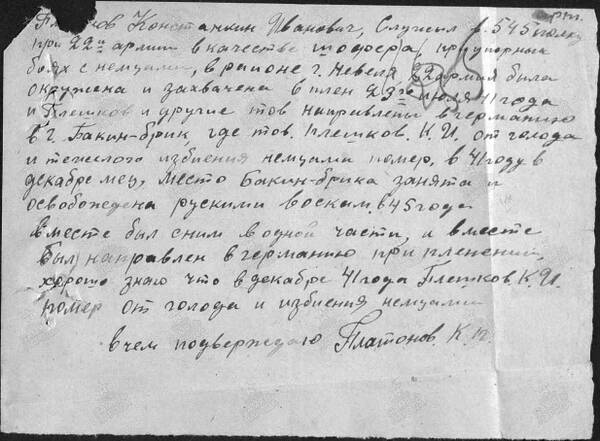 Плешков Константин Иванович, Служил в 545 полку
при 22й армии в качестве шофера, при упорных
боях с немцами, в районе г. Невеля, 22 армия была
окружена и захвачена в плен 23го июля 41 года
и Плешков и другие тов направлены в германию
в г. Бакин-брик где тов. Плешков. К. И. от голода
и тежелого избиения немцами помер, в 41 году в
декабре мец, место Бакин-брика занята и
освобождена рускими воскам. в 45 года
вместе был с ним в одной части, и вместе
был направлен в германию при пленении,
хорошо знаю что в декабре 41 года Плешков. К. И.
помер от голода и избиения немцами
в чем подверждаю Платонов. К.